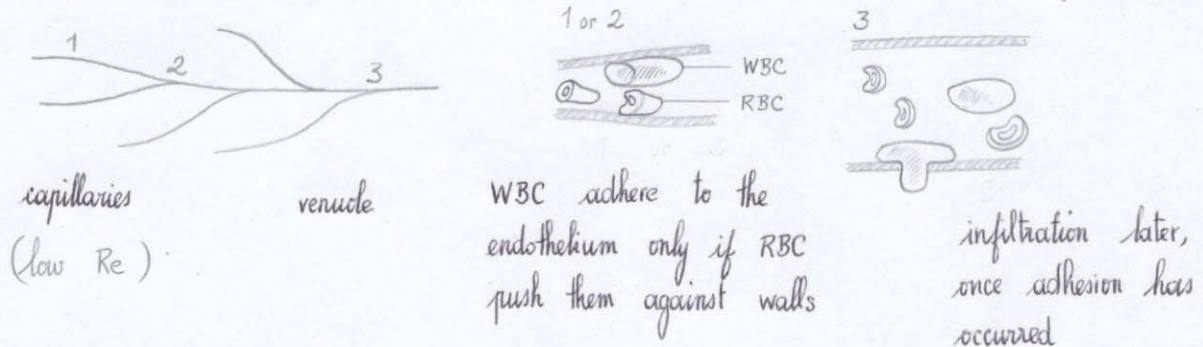 1
2
3
capillaries
(low Re)
venucle
1 or 2
WBC
RBC
WBC adhere to the
endothelium only if RBC
push them against walls
3
infiltration later,
once adhesion has
occurred